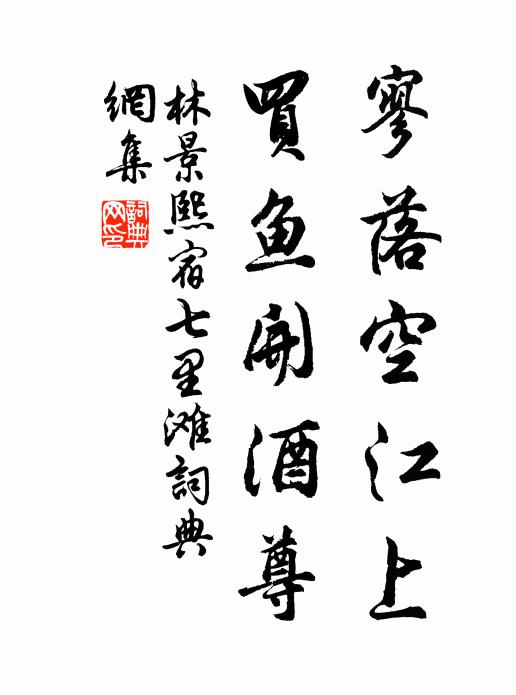 寥落空江上
買魚開酒尊
林景熙宿七里灘詞典
網集
詞典網印